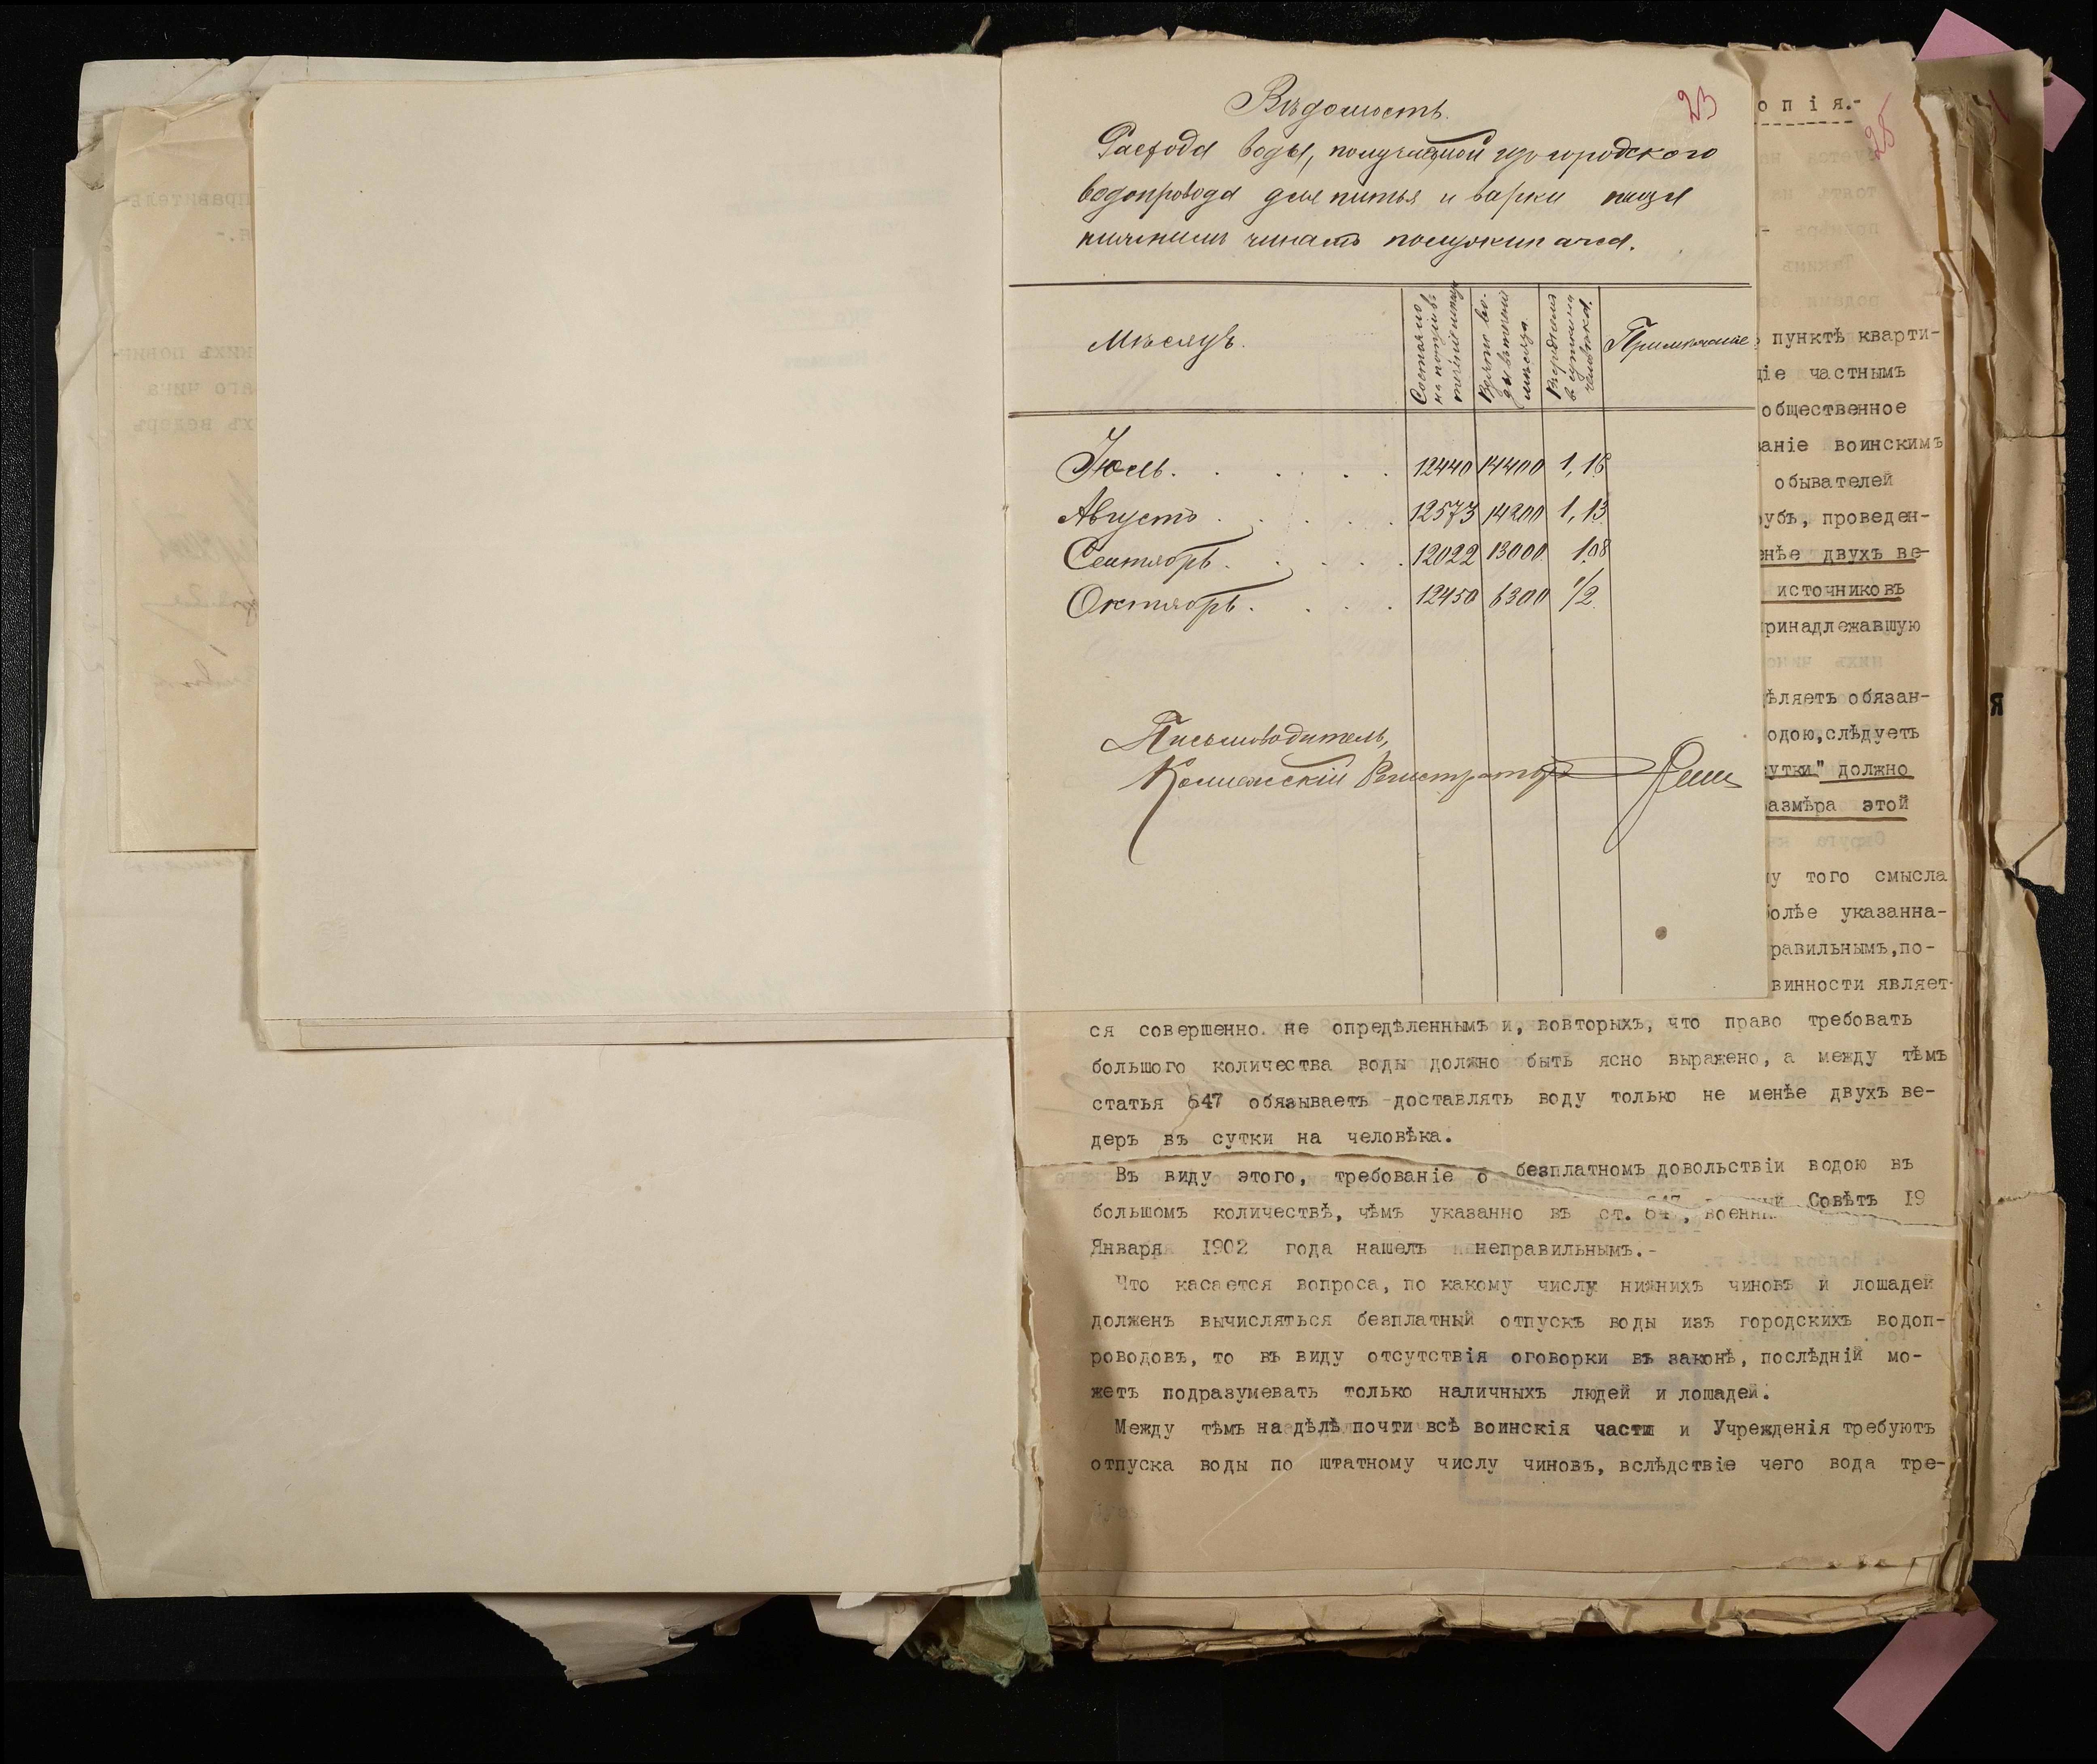 Вѣдомость.
23
Расхода воды, получаемой изъ городского
водопровода для питья и варки пищи
нижнимъ чинамъ
Мѣсяцъ.
Состояло
на
Взято во-
ды въ теченіи
мѣсяца.
въ сутки на
человѣка.
Примѣчаніе
Іюль. 12440 14400 1,16
Августъ 12573 14200 1,13
Сентябрь. 12022 13000 1.08
Октябрь. 12450 6300 1/2
Письмоводитель,
Коллежскій Регистраторъ
опія.-
28
пунктѣ кварти-
частнымъ
общественное
воинскимъ
обывателей
проведен-
двухъ ве-
источниковъ
обязан-
слѣдуетъ
должно
этой
того смысла
указанна-
по-
винности являет-
ся совершенно не опредѣленнымъ и, вовторыхъ, что право требовать
большого количества воды должно быть ясно выражено, а между тѣмъ
статья 647 обязываетъ доставлять воду только не менѣе двухъ ве-
деръ въ сутки на человѣка.
Въ виду этого, требованіе о безплатномъ довольствіи водою въ
большомъ количествѣ, чѣмъ указанно въ ст. 647, Совѣтъ 19
Января 1902 года нашелъ неправильнымъ.-
Что касается вопроса, по какому числу нижнихъ чиновъ и лошадей
долженъ вычисляться безплатный отпускъ воды изъ городскихъ водоп-
роводовъ, то въ виду отсутствія оговорки въ законѣ, послѣдній мо-
жетъ подразумевать только наличныхъ людей и лошадей.
Между тѣмъ на дѣлѣ почти всѣ воинскія части и Учрежденія требуютъ
отпуска воды по штатному числу чиновъ, вслѣдствіе чего вода тре-